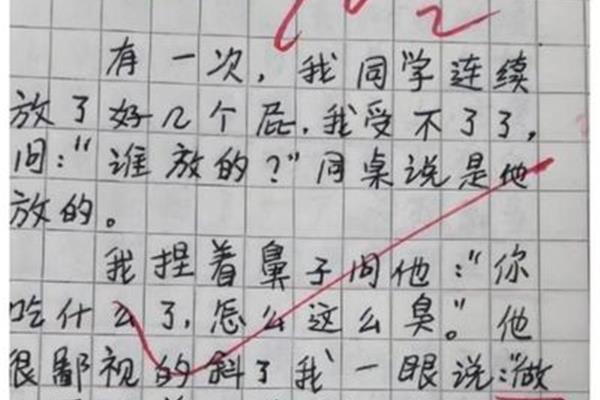 有一次，我同学连续
放了好几个屁，我受不了了，
问：“谁放的？”同桌说是他
放的。
我捏着鼻子问他：“你
吃什么了，怎么这么臭。”他
很鄙视的斜了我一眼说：“做